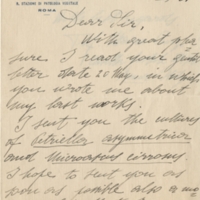 R. STAZIONE DI PATOLOGIA VEGETALE
ROMA
Dear Sir,
With great plea
sure I read your
letter date 20 May, in which
you wrote me about
my last works.
I sent you the cultures
of
and Microascus
I hope to sent you as
soon as possible also a